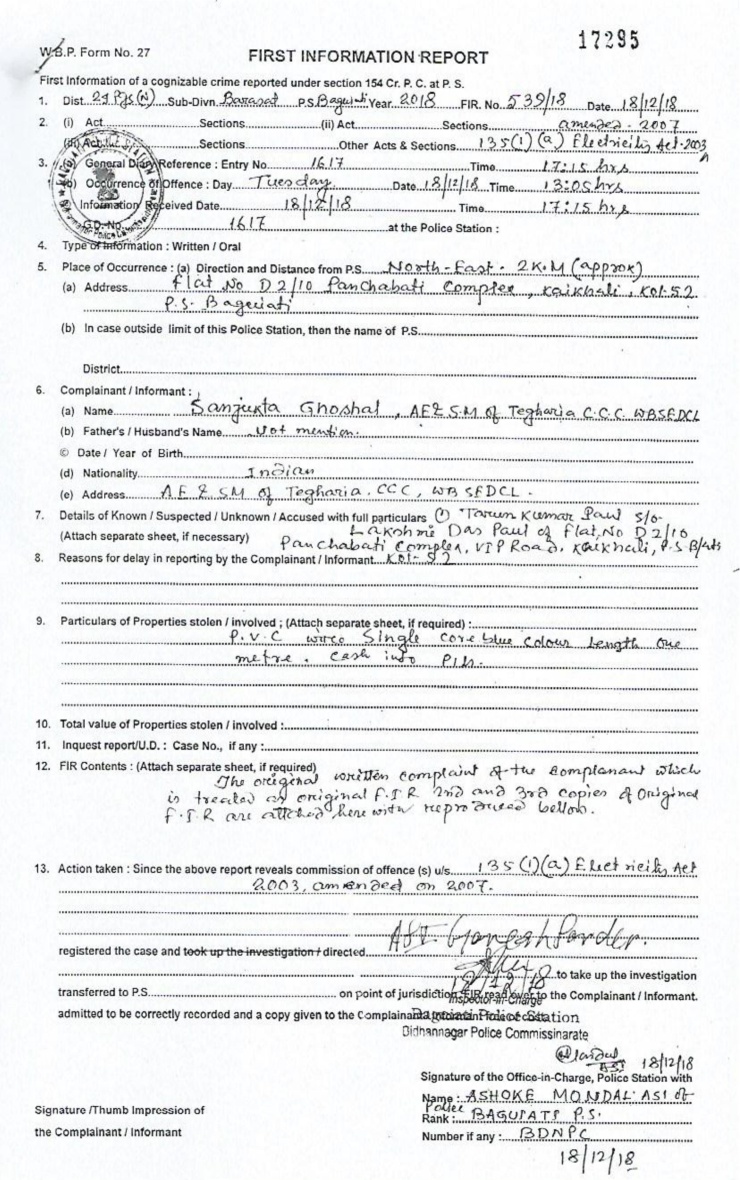 17295
W.B.P. Form No. 27
FIRST INFORMATION REPORT
First Information of a cognizable crime reported under section 154 Cr. P. C. at P. S.
1. Dist. 24 Pgs(N) Sub-Divn. Barasat P.S. Baguiati Year 2018 FIR. No. 539/18 Date 18/12/18
2. (i) Act Sections (ii) Act Sections amended - 2007
(iii) Act Sections Other Acts & Sections 135(1)(a) Electricity Act-2003
3. (a) General Diary Reference : Entry No 1617 Time 17:15 hrs
(b) Occurrence of Offence : Day Tuesday Date 18/12/18 Time 13:05 hrs
Information Received Date 18/12/18 Time 17:15 hrs
G.D. No. 1617 at the Police Station :
4. Type of Information : Written / Oral
5. Place of Occurrence : (a) Direction and Distance from P.S. North-East - 2 K.M (approx)
(a) Address Flat No D 2/10 Panchabati Complex, Kaikhali, Kol-52
P.S. Baguiati
(b) In case outside limit of this Police Station, then the name of P.S.
District
6. Complainant / Informant :
(a) Name Sanjukta Ghoshal, AE & S.M of Tegharia C.C.C. WBSEDCL
(b) Father's / Husband's Name Not mention.
© Date / Year of Birth
(d) Nationality Indian
(e) Address A E & SM of Tegharia. CCC, WBSEDCL.
7. Details of Known / Suspected / Unknown / Accused with full particulars (1) Tarun Kumar Paul s/o-
(Attach separate sheet, if necessary) Lakshmi Das Paul of Flat No D 2/10
Panchabati Complex, VIP Road, Kaikhali, P.S B/ati
8. Reasons for delay in reporting by the Complainant / Informant Kol-52
9. Particulars of Properties stolen / involved ; (Attach separate sheet, if required) :
P.V.C wire Single core blue colour Length one
metre. cash into
10. Total value of Properties stolen / involved :
11. Inquest report/U.D. : Case No., if any :
12. FIR Contents : (Attach separate sheet, if required)
The original written complaint of the complanant which
is treated as original F.I.R 2nd and 3rd copies of Original
F.I.R are attched here with reproduced bellow.
13. Action taken : Since the above report reveals commission of offence (s) u/s. 135(1)(a) Electricity Act
2003, amended on 2007.
registered the case and took up the investigation / directed ASI. Ganesh Sarder.
18/12/18 to take up the investigation
Inspector-in-Charge
transferred to P.S. on point of jurisdiction FIR read over to the Complainant / Informant.
admitted to be correctly recorded and a copy given to the Complainant / Informant free of cost
Baguiati Police Station
Bidhannagar Police Commissinarate
ASI 18/12/18
Signature of the Office-in-Charge, Police Station with
Name : ASHOKE MONDAL ASI of
Police
Rank : BAGUIATI P.S.
Number if any : BDNPC
18/12/18
Signature /Thumb Impression of
the Complainant / Informant